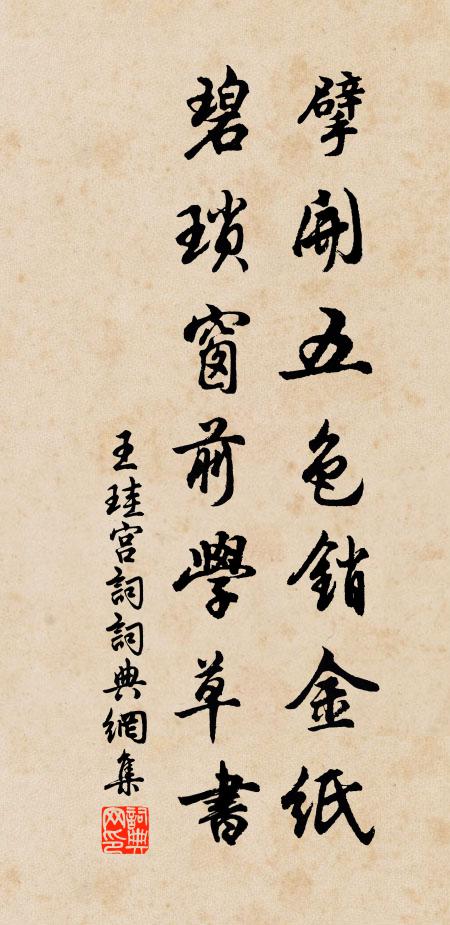 擘開五色銷金紙
碧瑣窗前學草書
王珪宮詞詞典網集
詞典网印